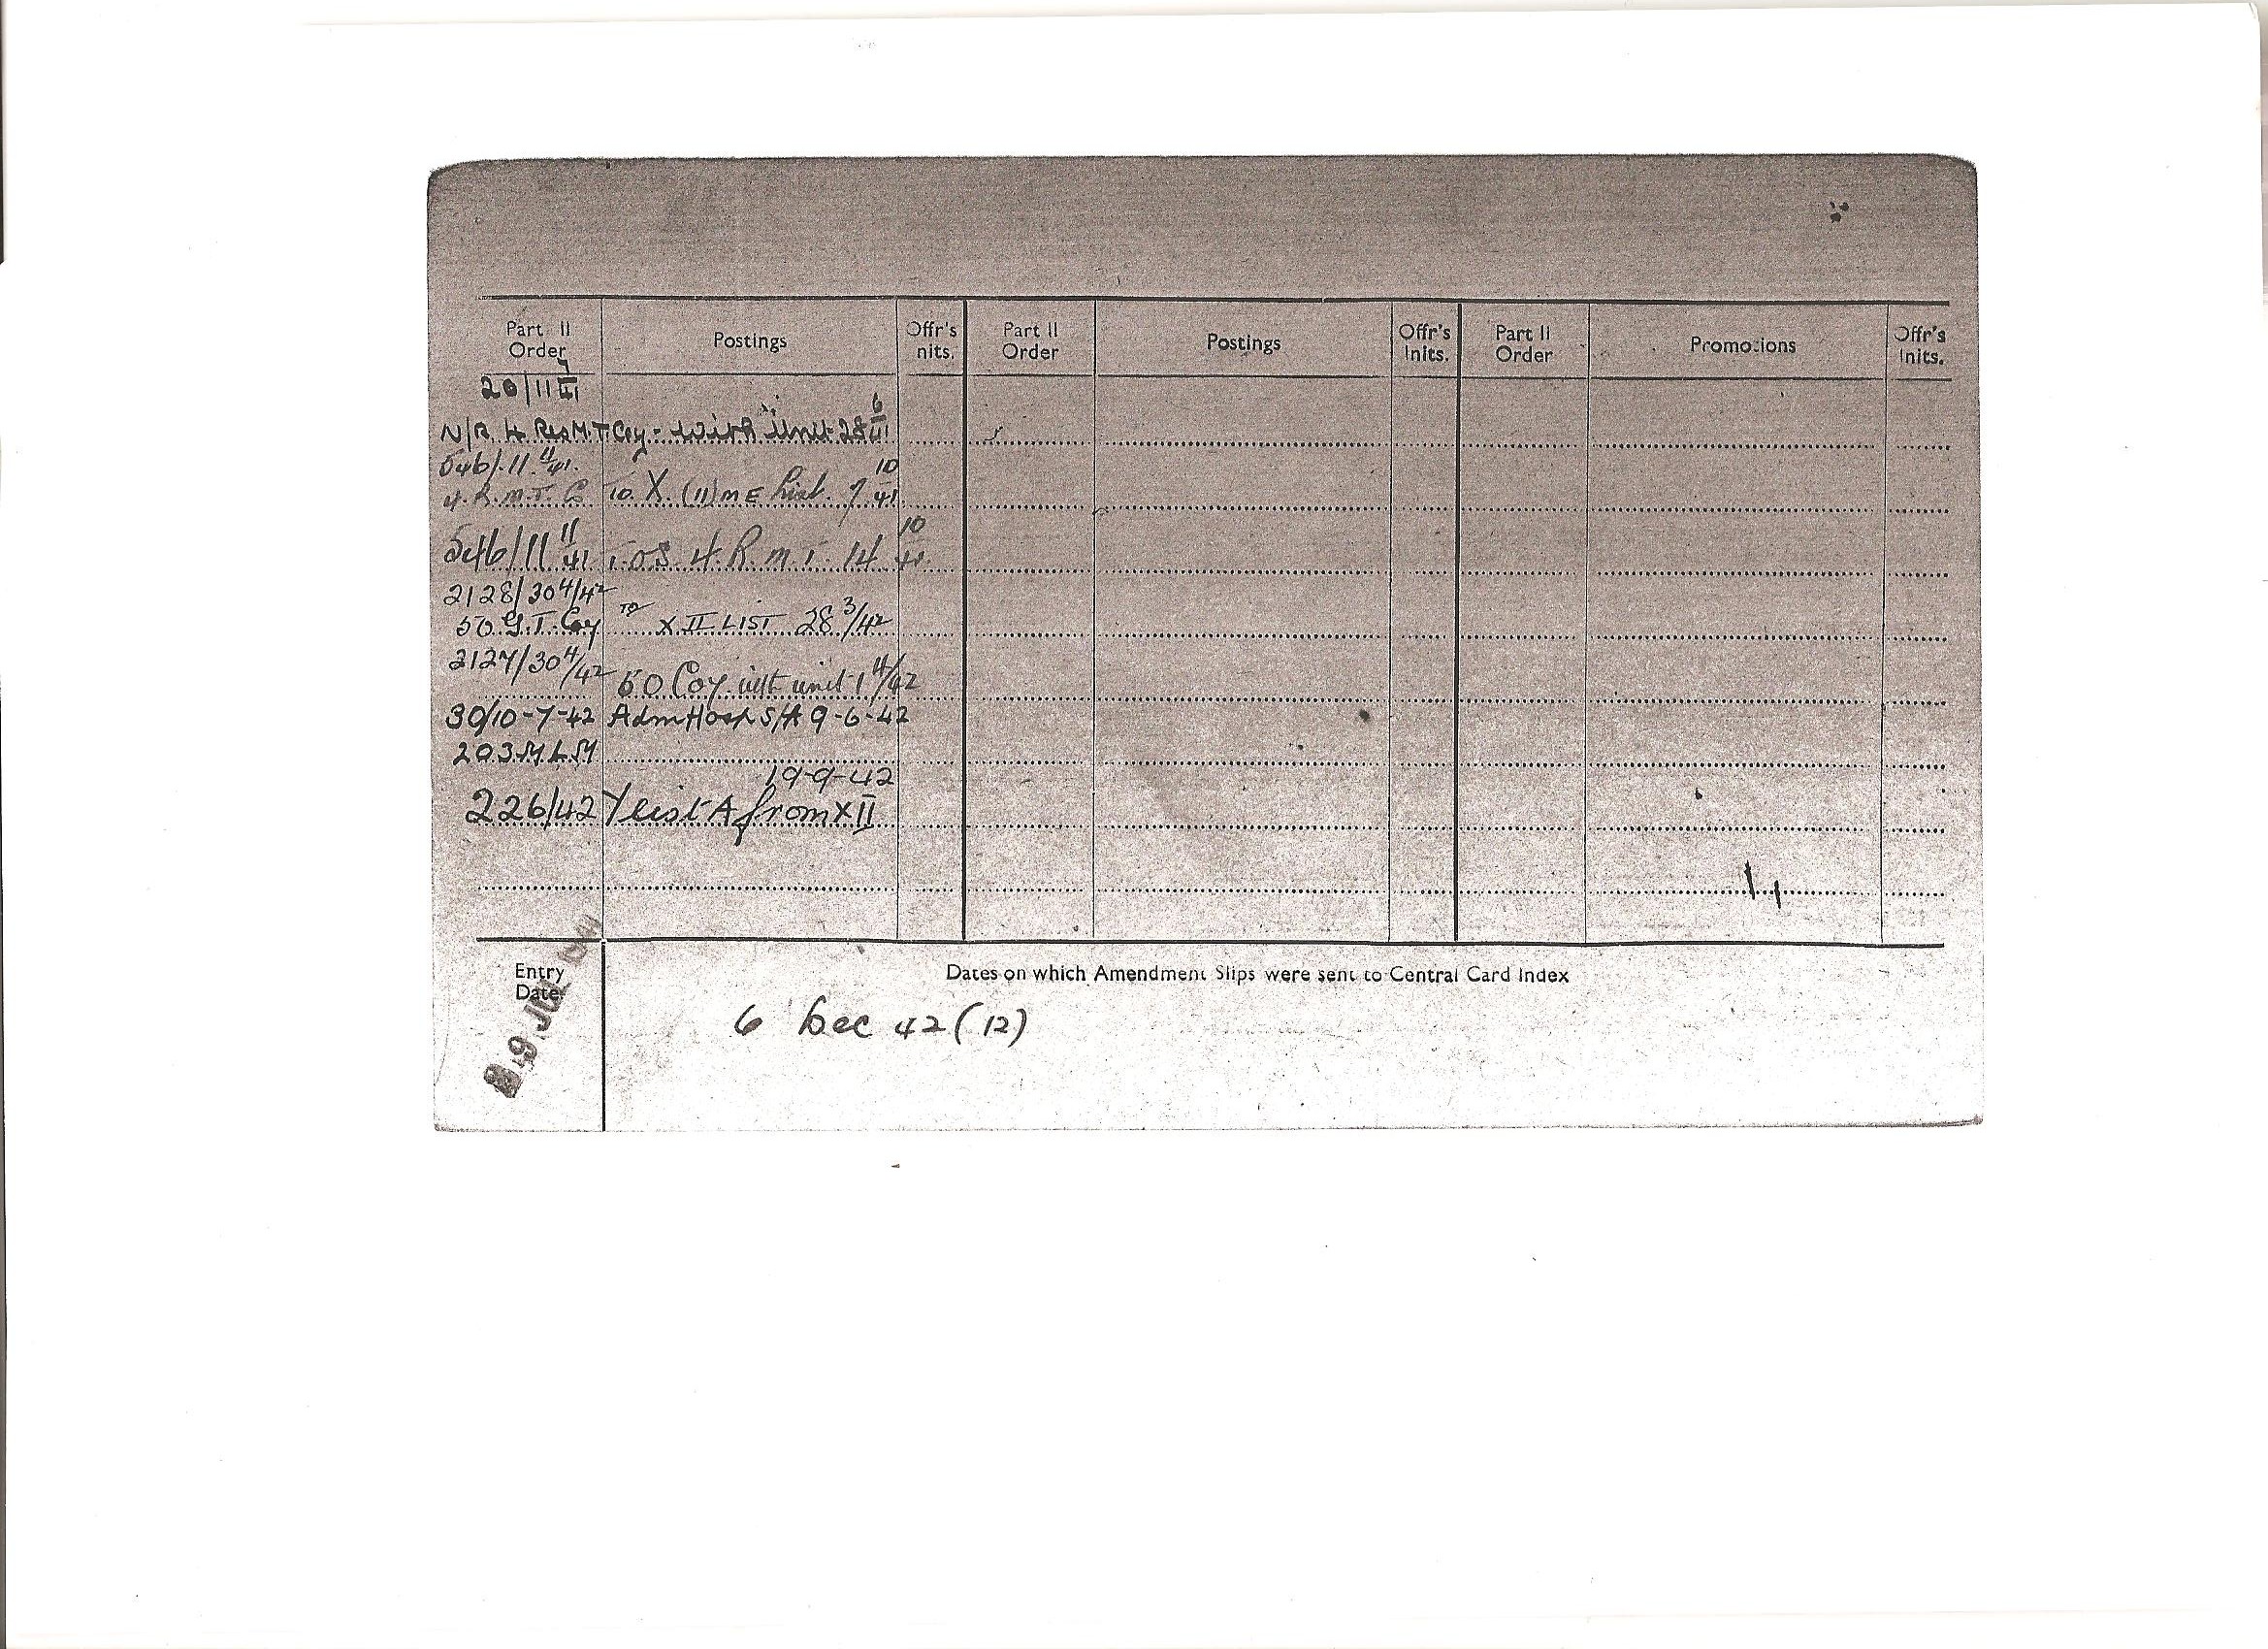 Part II Order Postings Offr's nits. Part II Order Postings Offr's Inits. Part II Order Promotions Offr's Inits.
20/11 9/41
N/R 4 Res M.T Coy - With Unit 28 6/41
546/11 11/41
4. R.M.T. C To X (11) M E List 7 10/41
546/11 11/41 T.O.S 4 R.M.T. 14 10/41
2128/30 4/42
50 G.T. Coy TO X II LIST 28 3/42
2127/30 4/42
50 Coy with unit 1 4/42
30/10-7-42 Adm Hosp S/A 9-6-42
203
19-9-42
226/42 Y List A from X II
Entry Date
Dates on which Amendment Slips were sent to Central Card Index
6 Dec 42 (12)